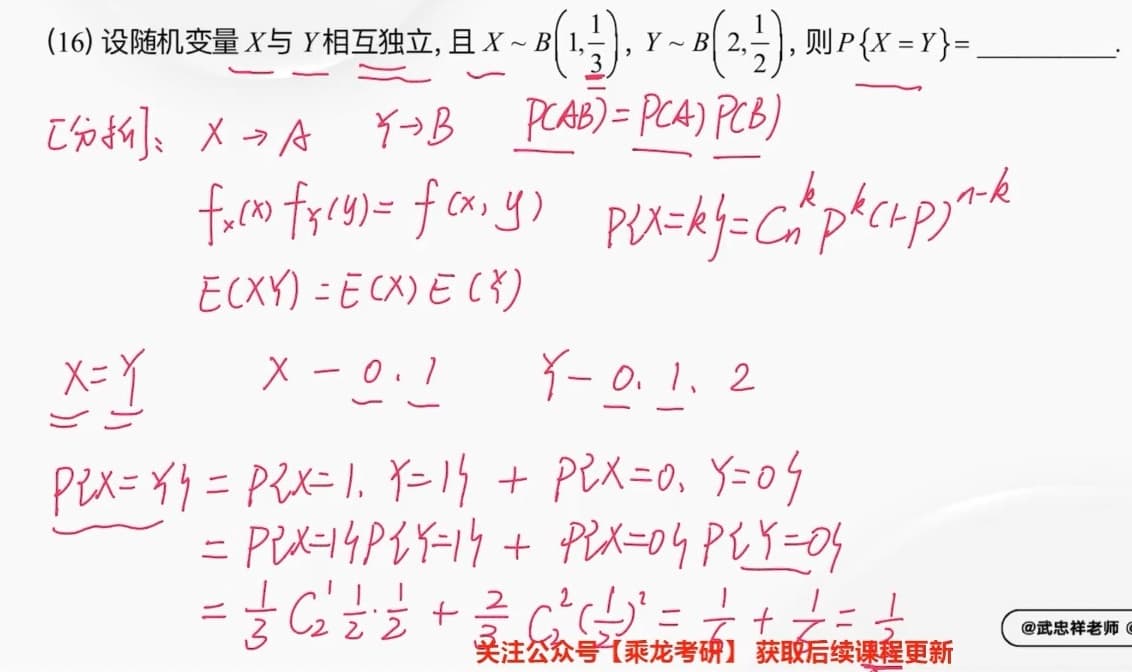 (16) 设随机变量 X与 Y相互独立, 且 X ~ B(1, 1/3), Y ~ B(2, 1/2), 则P{X = Y}= ________.
[分析]: X → A Y → B P(AB) = P(A) P(B)
f_X(x) f_Y(y) = f(x, y) P{X=k} = C_n^k p^k (1-p)^{n-k}
E(XY) = E(X) E(Y)
X = Y X — 0. 1 Y — 0. 1. 2
P{X = Y} = P{X=1. Y=1} + P{X=0. Y=0}
= P{X=1}P{Y=1} + P{X=0}P{Y=0}
= 1/3 C_2^1 1/2 · 1/2 + 2/3 C_2^2 (1/2)^2 = 1/6 + 1/6 = 1/3
@武忠祥老师
关注公众号【乘龙考研】 获取后续课程更新